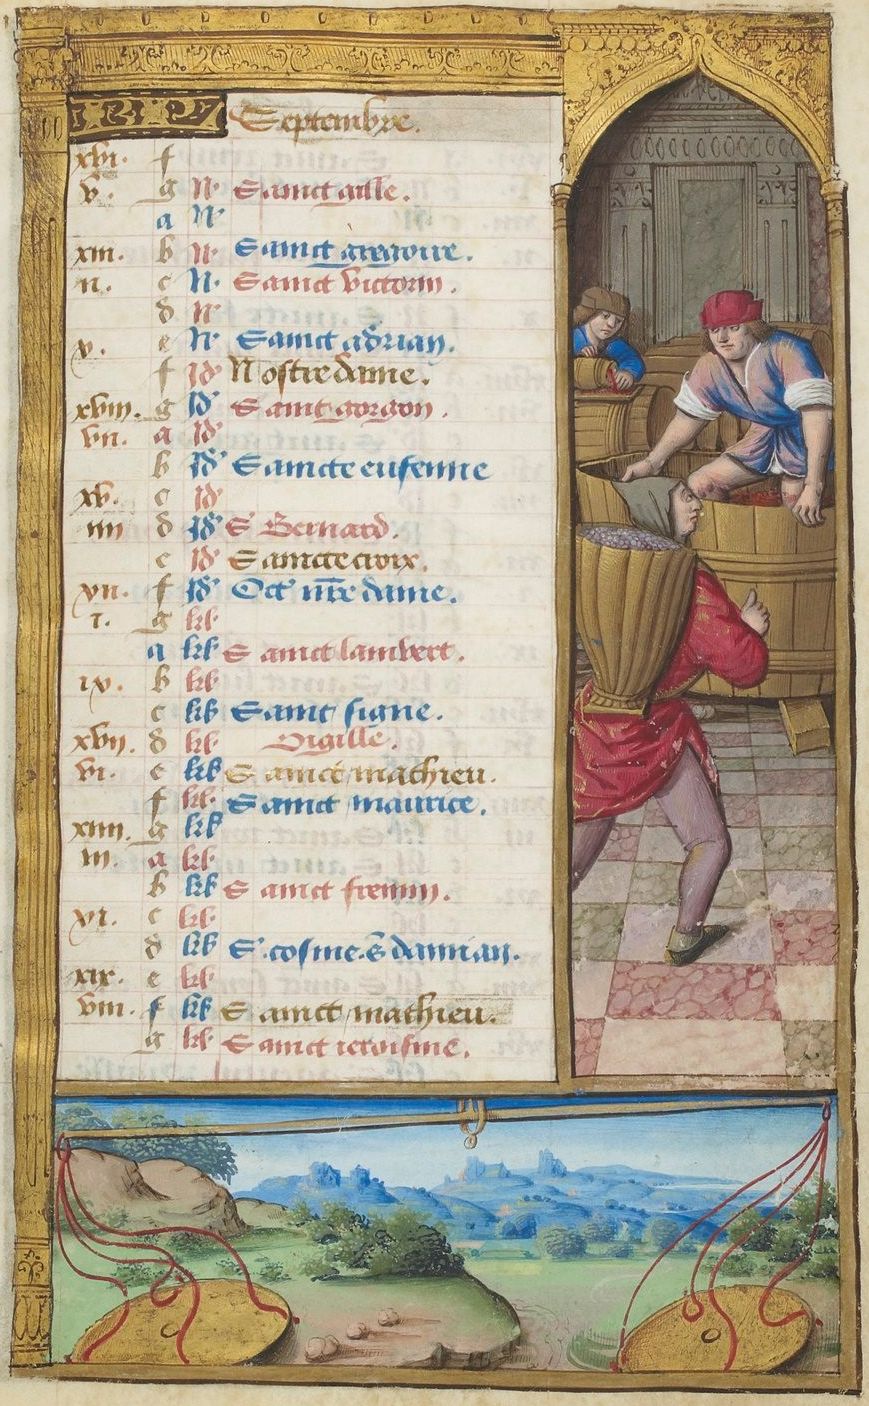 Septembre.
xvi. f
v. g N. Sainct gille.
a N.
xiii. b N. Sainct gregoire.
ii. c N. Sainct victorin.
d N.
x. e N. Sainct adrian.
f Id Nostre dame.
xviii. g Id Sainct gorgon.
vii. a Id
b Id Saincte eufenne
xv. c Id
iiii d Id S Bernard.
e Id Saincte croix.
xii. f Id Oct nre dame.
i. g kl
a kl Sainct lambert.
ix. b kl
c kl Sainct signe.
xvii. d kl Vigille.
vi. e kl Sainct mathieu.
f kl Sainct maurice.
xiiii. g kl
iii. a kl
b kl Sainct fremin.
xi. c kl
d kl S. cosme & damian.
xix. e kl
viii. f kl Sainct mathieu.
g kl Sainct ieroisme.